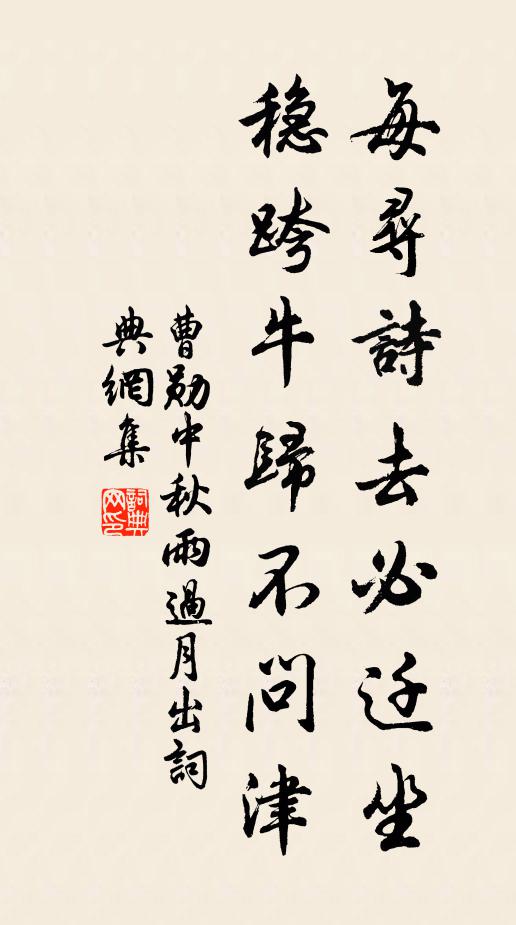 每尋詩去必迂坐
穩跨牛歸不問津
曹勛中秋雨過月出詞
典網集
詞典网印